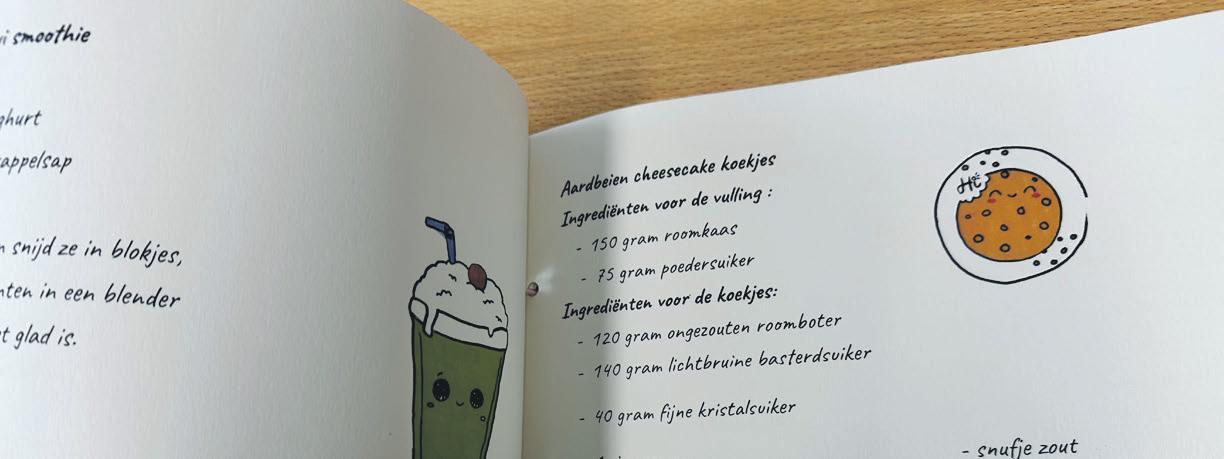 smoothie
appelsap
snijd ze in blokjes,
in een blender
glad is.
Aardbeien cheesecake koekjes
Ingrediënten voor de vulling :
- 150 gram roomkaas
- 75 gram poedersuiker
Ingrediënten voor de koekjes:
- 120 gram ongezouten roomboter
- 140 gram lichtbruine basterdsuiker
- 40 gram fijne kristalsuiker
- snufje zout
Hi